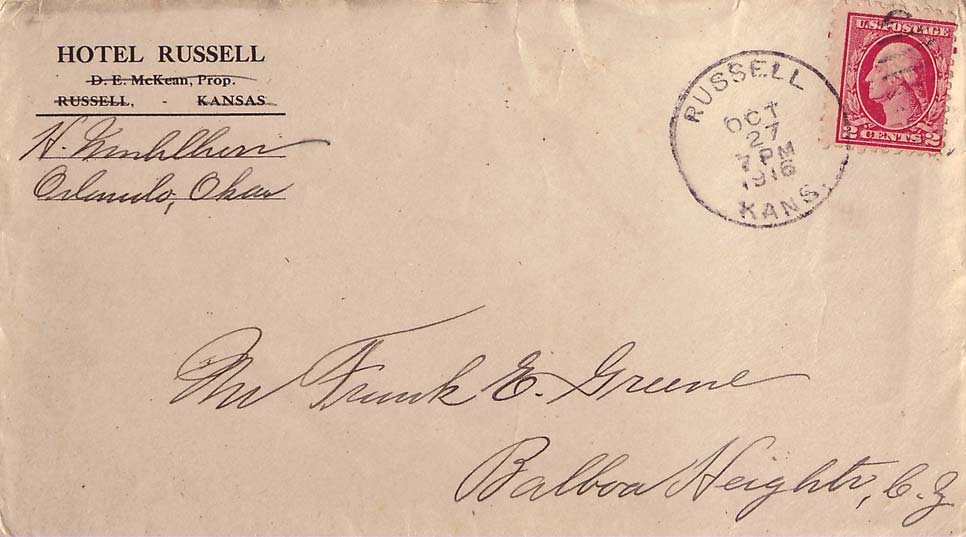 HOTEL RUSSELL
D. E. McKean, Prop.
RUSSELL, - KANSAS
H.
Orlando, Okla
RUSSELL
OCT
27
7 PM
1916
KANS.
U.S. POSTAGE
2 CENTS 2
Mr Frank E. Greene
Balboa Heights, C. Z